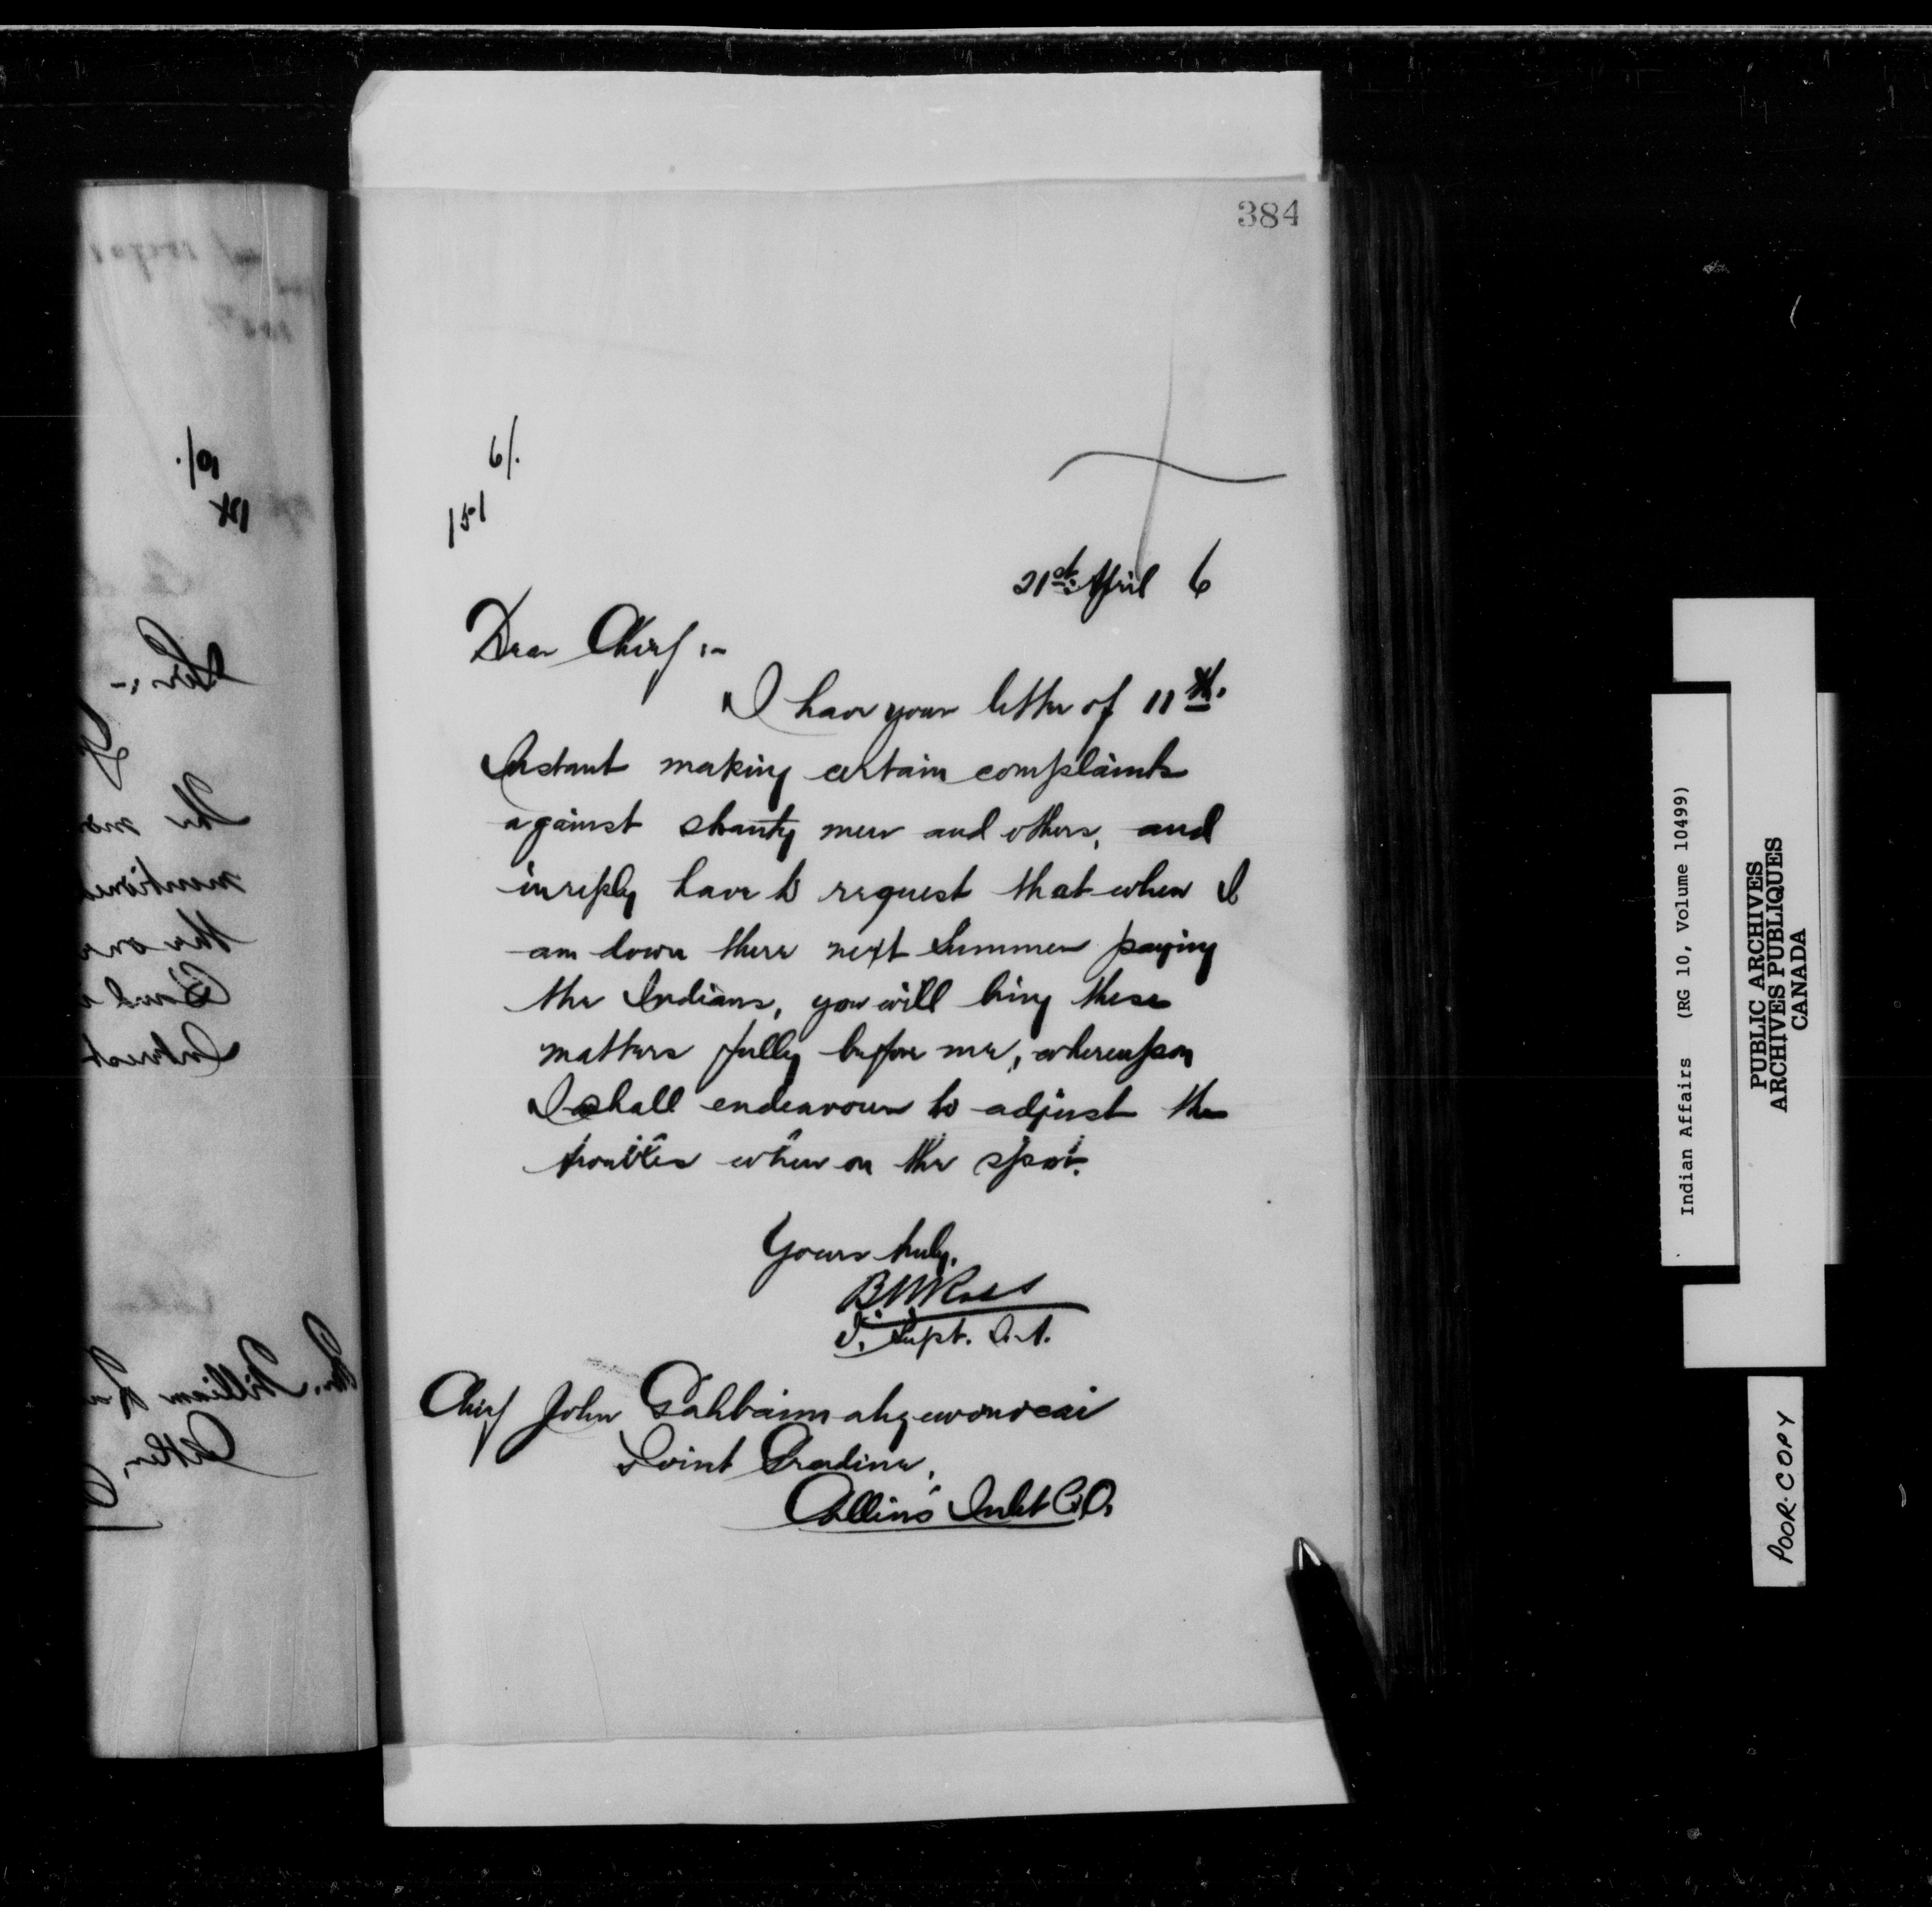 384
6/.
151
21st. April 6
Dear Chief :-
I have your letter of 11th.
Instant making certain complaints
against shanty men and others, and
in reply have to request that when I
am down there next Summer paying
the Indians, you will bring these
matters fully before me, whereupon
I shall endeavour to adjust the
troubles when on the spot.
Yours truly,
B W Ross
Supt. I.A.
Chief John
Point Grondine,
Collins Inlet P.O.
Sir:-
The
mentioned
the one
Band
Interest
William
Indian Affairs (RG 10, Volume 10499)
PUBLIC ARCHIVES
ARCHIVES PUBLIQUES
CANADA
POOR COPY